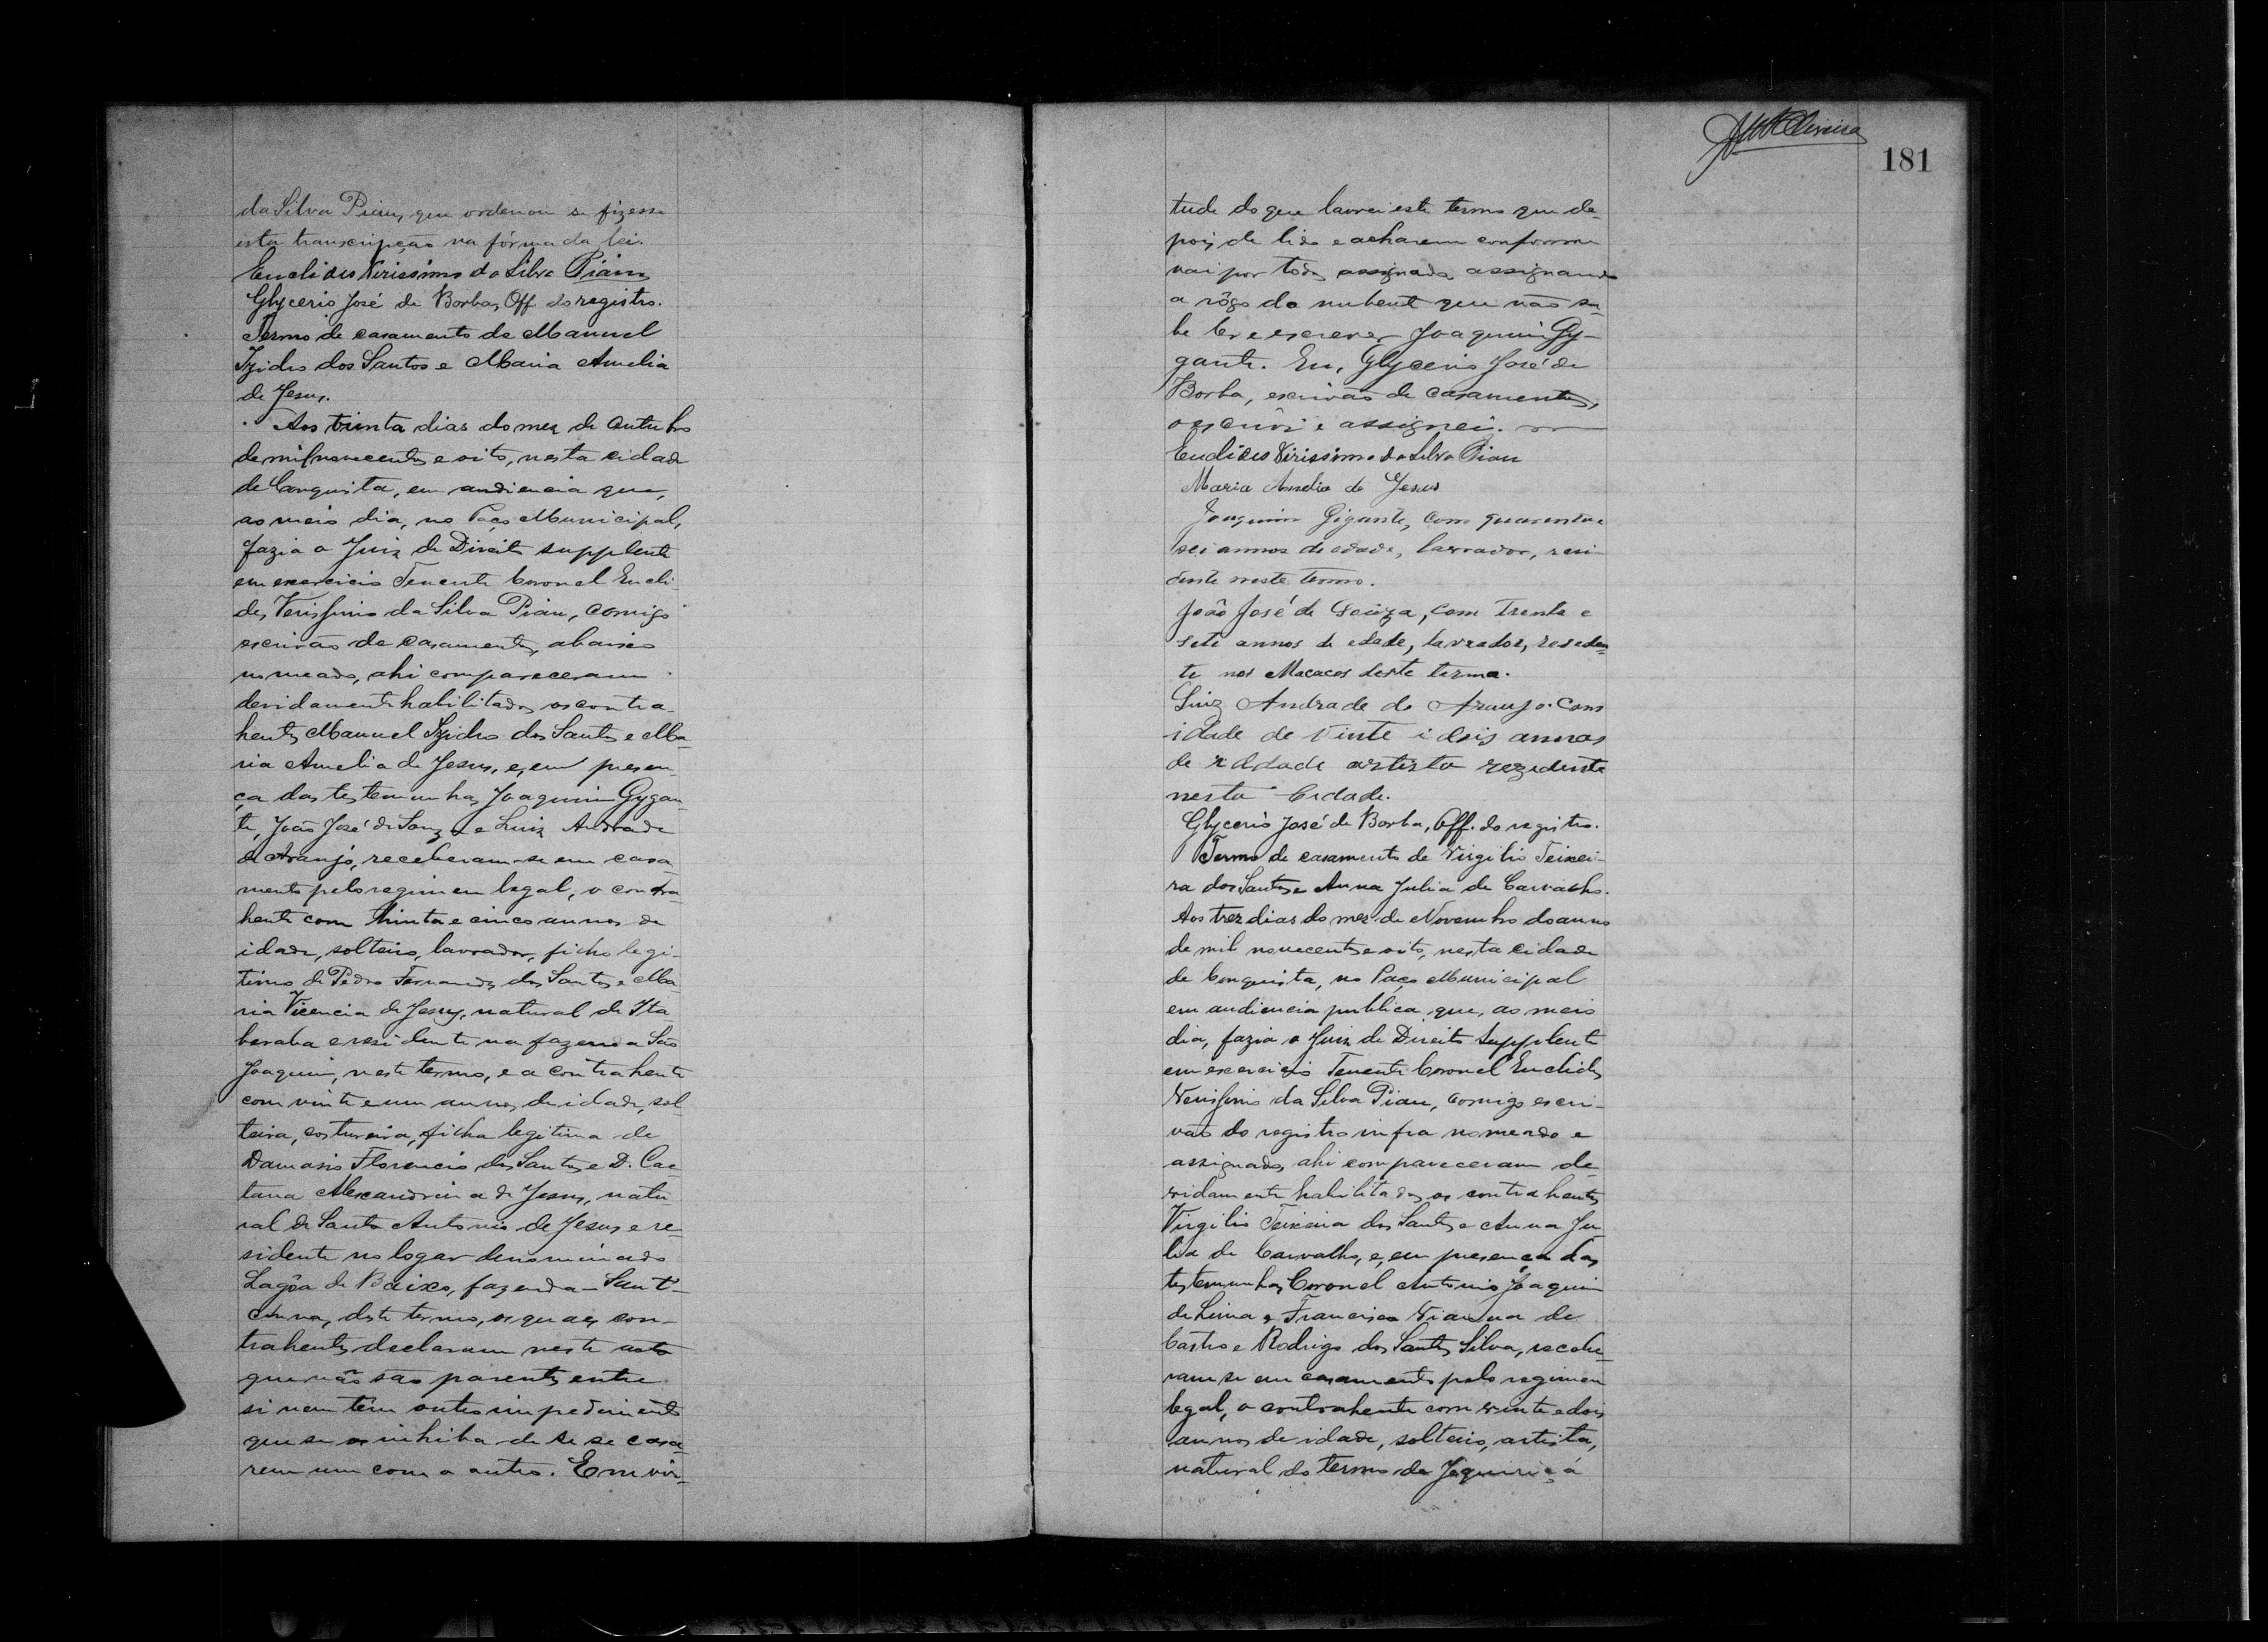 da Silva Pian, que ordenou se fizesse
esta transcripção na fórma da lei.
Euclides Virissimo da Silva Pian
Glycerio José de Borba, Off. do registro.
Termo de casamento de Manuel
Izidro dos Santos e Maria Amelia
de Jesus.
Aos trinta dias do mez de Outubro
de mil novecentos e oito, nesta cidade
de Conquista, em audiencia que,
ao meio dia, no Paço Municipal,
fazia o Juiz de Direito supplente
em exercicio Tenente Coronel Eucli-
des Verissimo da Silva Pian, comigo
escrivão de casamentos, abaixo
nomeado, ahi compareceram
devidamente habilitados os contra-
hentes Manuel Izidro dos Santos e Ma-
ria Amelia de Jesus, e, em presen-
ça das testemunhas Joaquim Gygan-
te, João José de Souza e Luiz Andrade
de Araujo, receberam-se em casa-
mento pelo regimen legal, o contra-
hente com trinta e cinco annos de
idade, solteiro, lavrador, filho legi-
timo de Pedro Fernandes dos Santos e Ma-
ria Vicencia de Jesus, natural de Ita-
beraba e residente na fazenda São
Joaquim, neste termo, e a contrahente
com vinte e um annos de idade, sol-
teira, costureira, filha legitima de
Damasio Florencio dos Santos e D. Cae-
tana Alexandrina de Jesus, natu-
ral de Santo Antonio de Jesus e re-
sidente no logar denominado
Lagôa de Baixo, fazenda - Sant'-
Anna, deste termo, os quaes con-
trahentes declaram neste acto
que não são parentes entre
si nem têm outro impedimento
que se os inhiba de se se casa-
rem um com o outro. Em vir-
181
tude do que lavrei este termo que de-
pois de lido e acharem conforme
vai por todos assignado, assignando
a rôgo do nubente que não sa-
be ler e escrever Joaquim Gy-
gante. Eu, Glycerio José de
Borba, escrivão de casamentos,
o escrevi e assignei.
Euclides Virissimo da Silva Pian
Maria Amelia de Jesus
Joaquim Gigante, com quarenta e
seis annos de edade, lavrador, resi-
dente neste termo.
João José de Souza, com trenta e
sete annos de edade, lavrador, reseden-
te nos Macacos deste termo.
Luiz Andrade de Araujo. Com
idade de vinte i dois annos
de idade artista rezedente
nesta Cidade.
Glycerio José de Borba, Off. do registro.
Termo de casamento de Virgilio Teixei-
ra dos Santos e Anna Julia de Carvalho.
Aos trez dias do mez de Novembro do anno
de mil novecentos e oito, nesta cidade
de Conquista, no Paço Municipal
em audiencia publica que, ao meio
dia, fazia o Juiz de Direito Supplente
em exercicio Tenente Coronel Euclides
Verissimo da Silva Pian, comigo escri-
vão do registro infra nomeado e
assignado, ahi compareceram de-
vidamente habilitados os contrahentes
Virgilio Teixeira dos Santos e Anna Ju-
lia de Carvalho, e, em presença das
testemunhas Coronel Antonio Joaquim
de Lima, Francisco Vianna de
Castro e Rodrigo dos Santos Silva, recebe-
ram se em casamento pelo regimen
legal, o contrahente com vinte e dois
annos de idade, solteiro, artista,
natural do termo de Jequiriçá